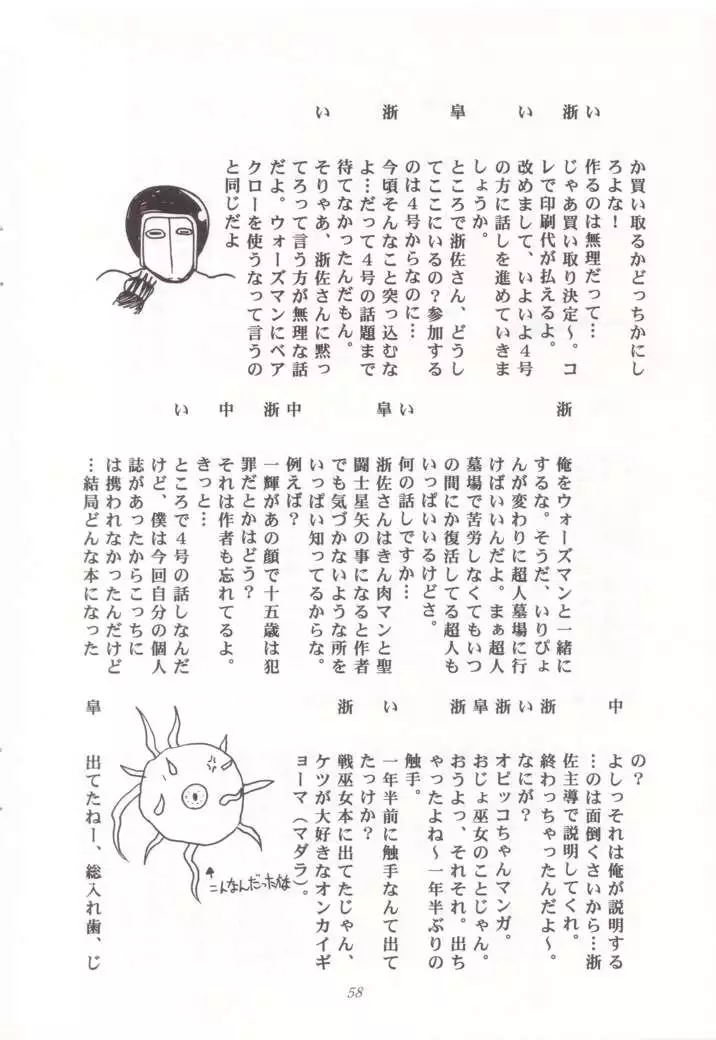 か買い取るかどっちかにし
ろよな!
い 作るのは無理だって…
浙 じゃあ買い取り決定~。コ
レで印刷代が払えるよ。
い 改めまして、いよいよ4号
の方に話しを進めていきま
しょうか。
皐 ところで浙佐さん、どうし
てここにいるの?参加する
のは4号からなのに…
浙 今頃そんなこと突っ込むな
よ…だって4号の話題まで
待てなかったんだもん。
い そりゃあ、浙佐さんに黙っ
てろって言う方が無理な話
だよ。ウォーズマンにベア
クローを使うなって言うの
と同じだよ
浙 俺をウォーズマンと一緒に
するな。そうだ、いりぴょ
んが変わりに超人墓場に行
けばいいんだよ。まぁ超人
墓場で苦労しなくてもいつ
の間にか復活してる超人も
いっぱいいるけどさ。
い 何の話しですか…
皐 浙佐さんはきん肉マンと聖
闘士星矢の事になると作者
でも気づかないような所を
いっぱい知ってるからな。
中 例えば?
浙 一輝があの顔で十五歳は犯
罪だとかはどう?
中 それは作者も忘れてるよ。
きっと…
い ところで4号の話しなんだ
けど、僕は今回自分の個人
誌があったからこっちに
は携われなかったんだけど
…結局どんな本になった
の?
中 よしっそれは俺が説明する
…のは面倒くさいから…浙
佐主導で説明してくれ。
浙 終わっちゃったんだよ~。
い なにが?
浙 オビッコちゃんマンガ。
皐 おじょ巫女のことじゃん。
浙 おうよっ、それそれ。出ち
ゃったよね~一年半ぶりの
触手。
い 一年半前に触手なんて出て
たっけか?
浙 戦巫女本に出てたじゃん、
ケツが大好きなオンカイギ
ョーマ(マダラ)。
こんなんだったかな
皐 出てたねー、総入れ歯、じ
58